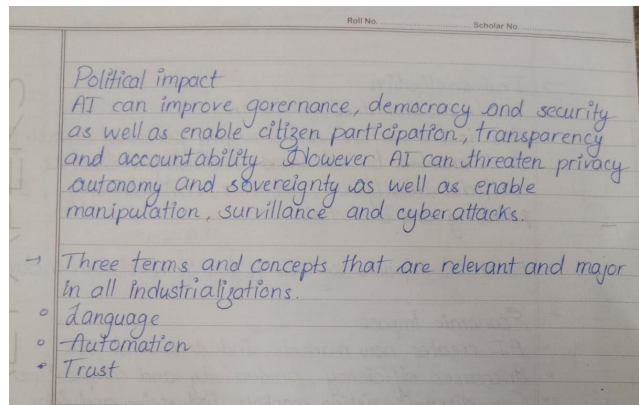 Roll No. Scholar No.
Political impact
AI can improve governance, democracy and security
as well as enable citizen participation, transparency
and accountability. However AI can threaten privacy
autonomy and sovereignty as well as enable
manipulation, survillance and cyber attacks.
→ Three terms and concepts that are relevant and major
in all industrializations.
o Language
o Automation
• Trust